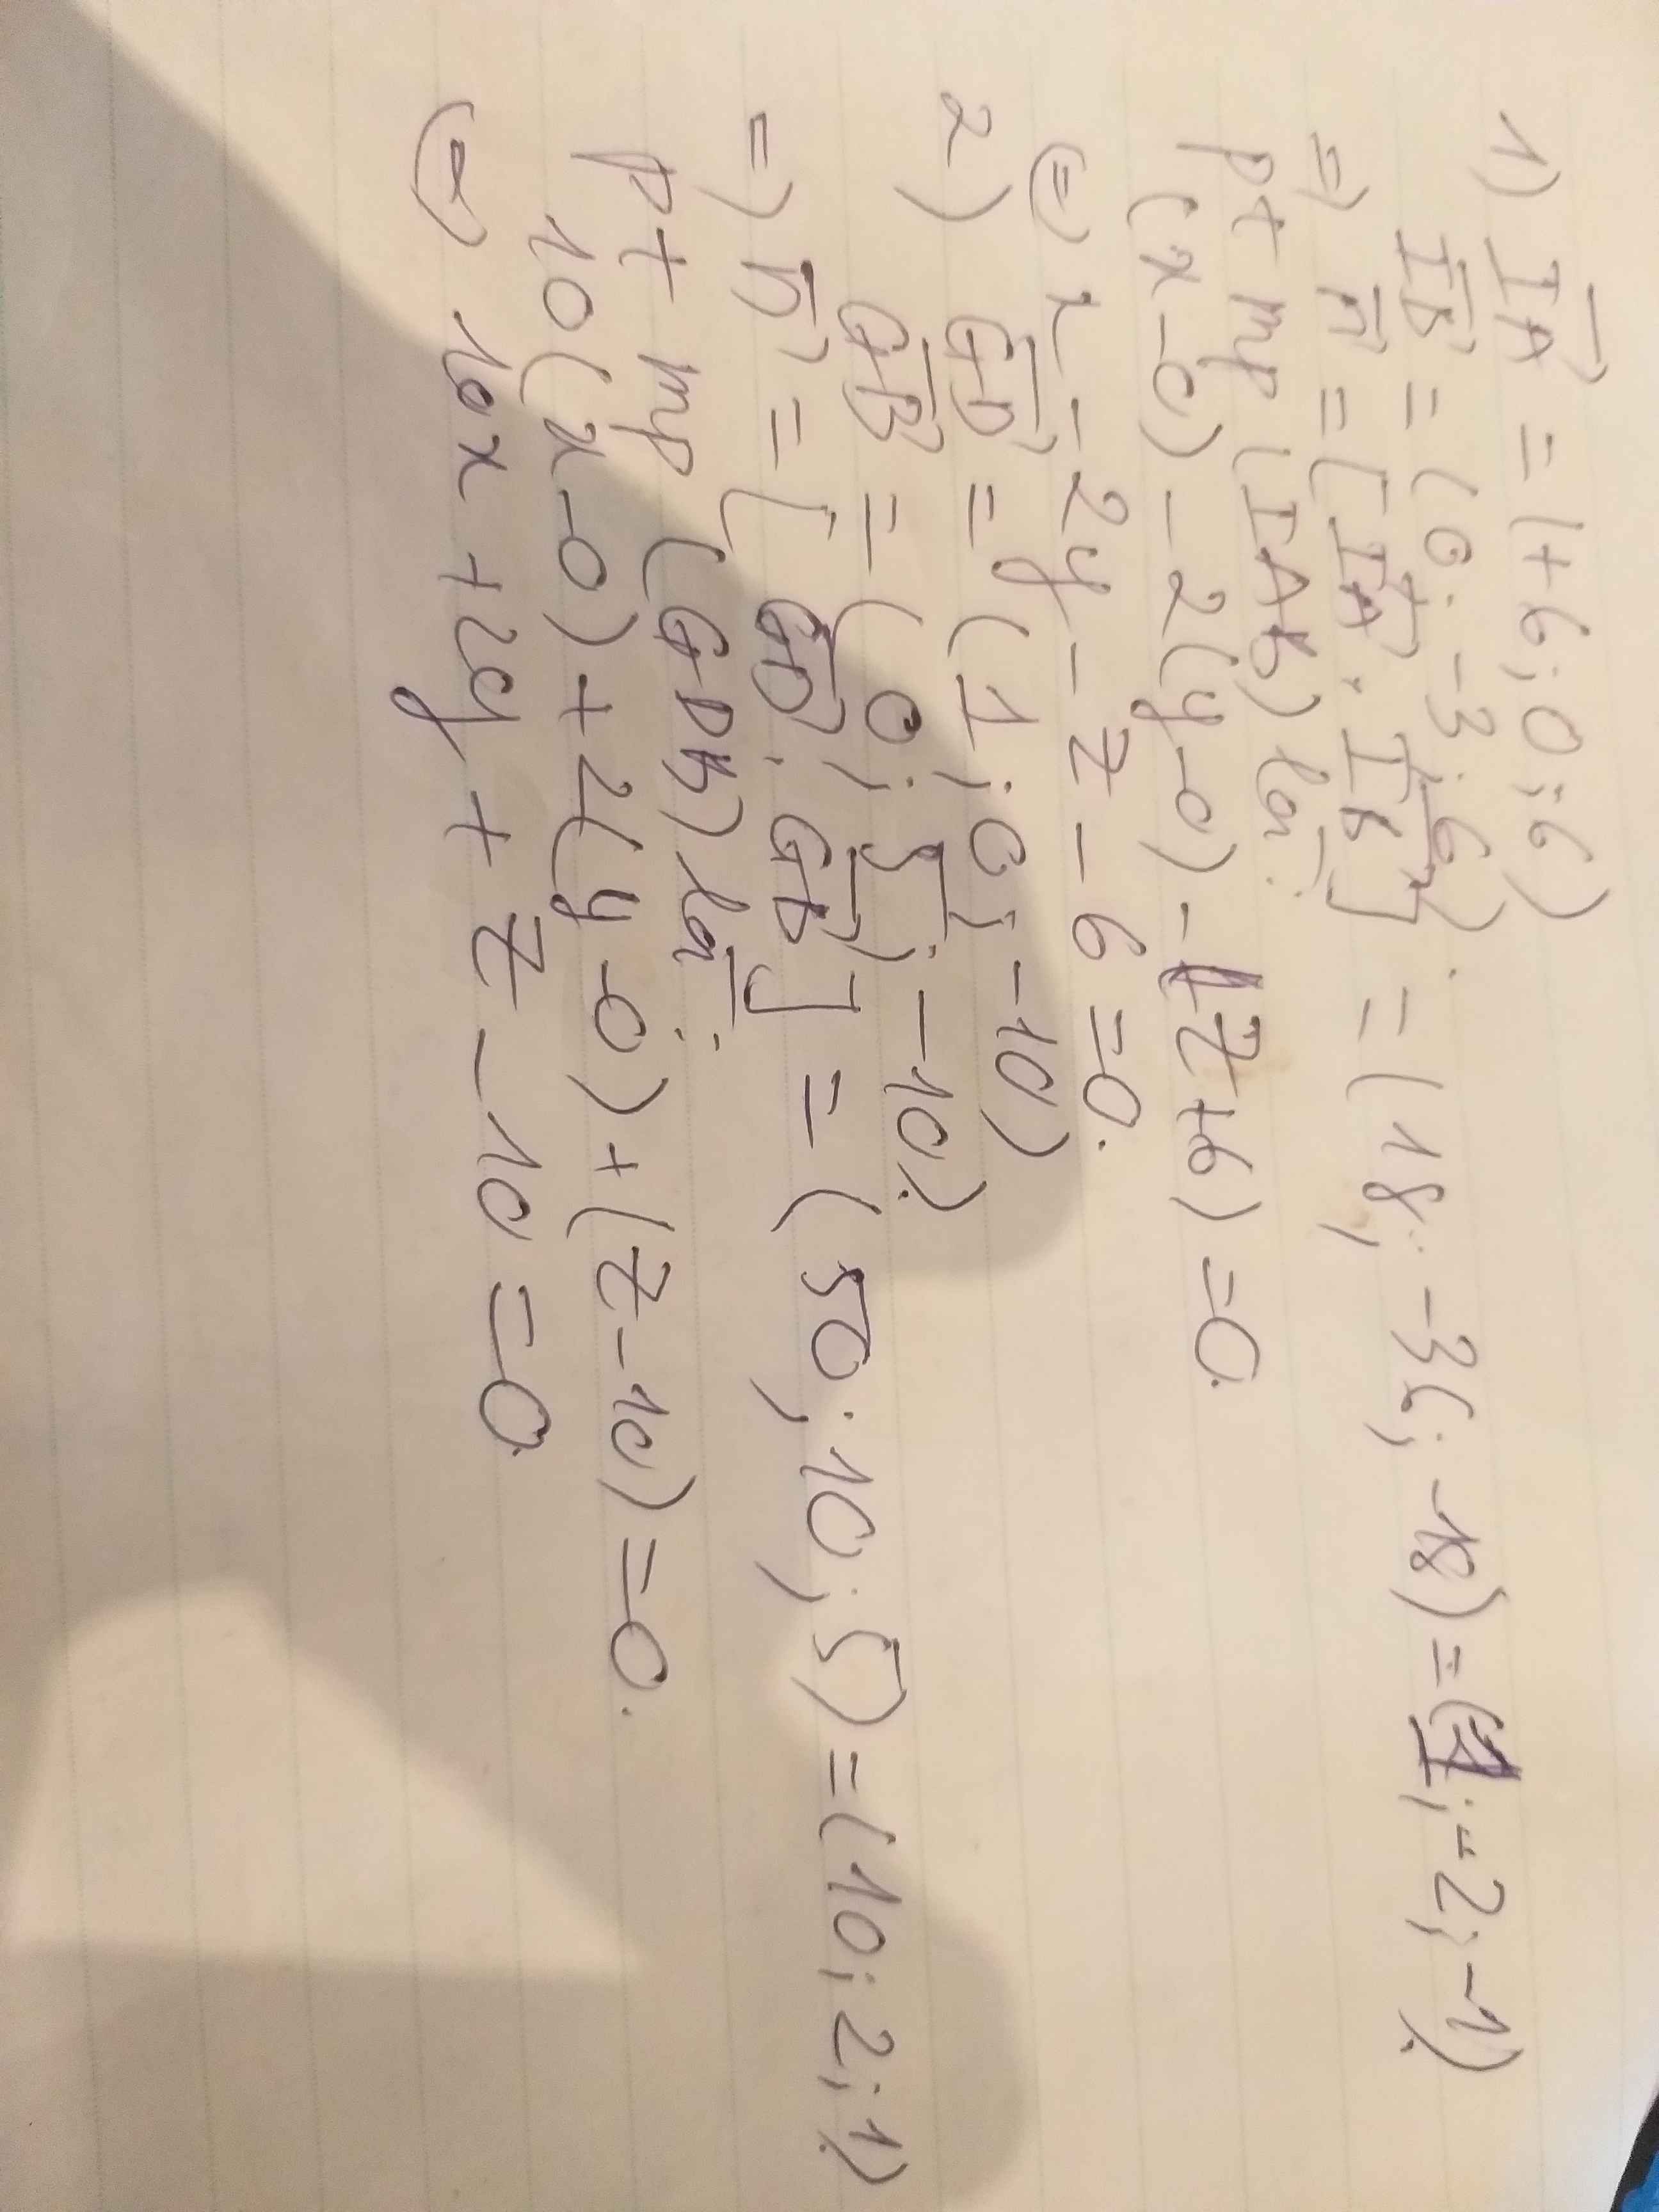 1) IA = (+6; 0; 6)
IB = (0; -3; 6)
=) n = [IA, IB] = (18; -36; -18) = (1; -2; -1)
pt mp (IAB) là:
(x-0) - 2(y-0) - 1(z+6) = 0.
(=) x - 2y - z - 6 = 0.
2) GD = (1; 0; -10)
GB = (0; 5; -10)
=) n = [GD; GB] = (50; 10; 5) = (10; 2; 1)
pt mp (GDB) là:
10(x-0) + 2(y-0) + (z-10) = 0.
(=) 10x + 2y + z - 10 = 0.